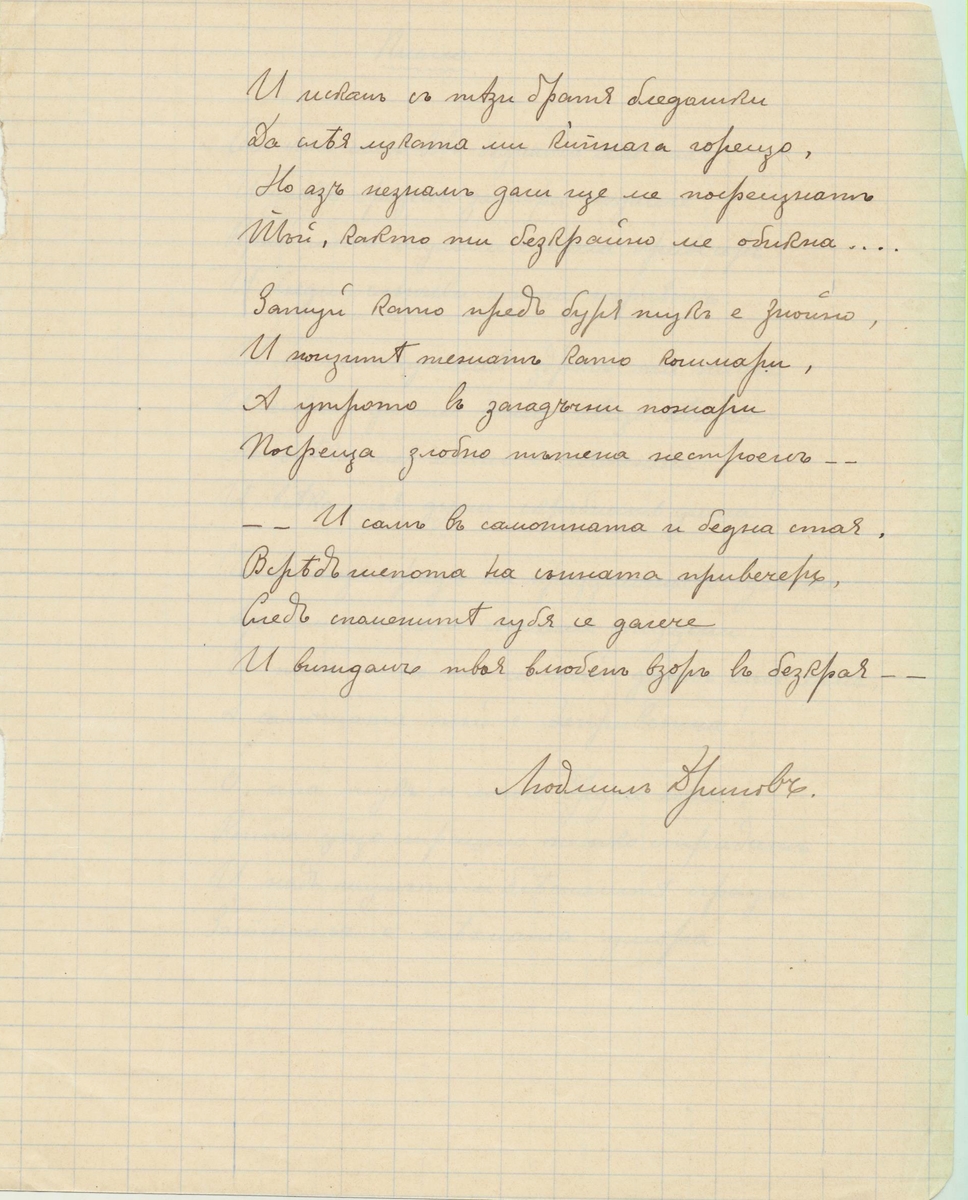 И искамъ съ тѣзи братя бледолики
Да слѣя мъката ми горещо,
Но азъ незнамъ дали ще ме посрещнатъ
Тъй, както ти безкрайно ме обикна....
Затуй като предъ буря тукъ е знойно,
И нощитѣ тежатъ като кошмари,
А утрото въ загадъчни пожари
Посреща злобно пътена нестроенъ --
-- И самъ въ самотната и бедна стая,
Всрѣдъ шепота на сънната привечерь,
Следъ споменитѣ губя се далече
И виждамъ твоя влюбенъ взоръ въ безкрая --
Людмилъ